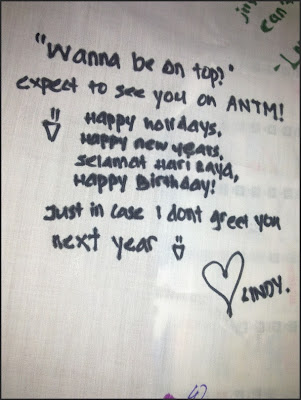 "Wanna be on top?"
expect to see you on ANTM!
Happy holidays,
Happy new years,
Selamat Hari Raya,
Happy Birthday!
Just in case I dont greet you
next year
LINDY.